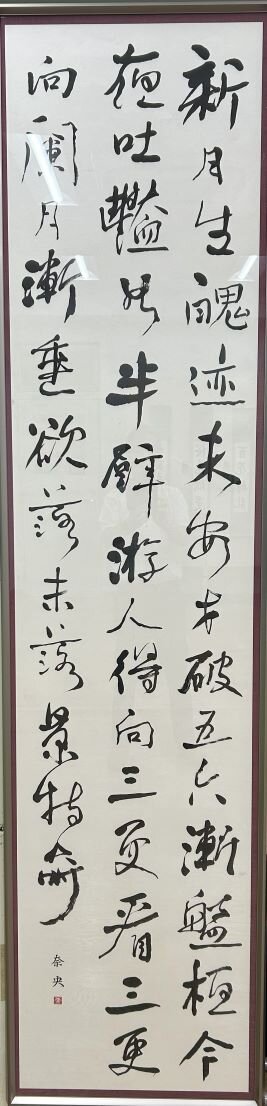 新月生魄迹未安才破五六漸盤桓今
夜吐豔如半璧游人得向三更看三更
向闌月漸垂欲落未落景特奇
秦央